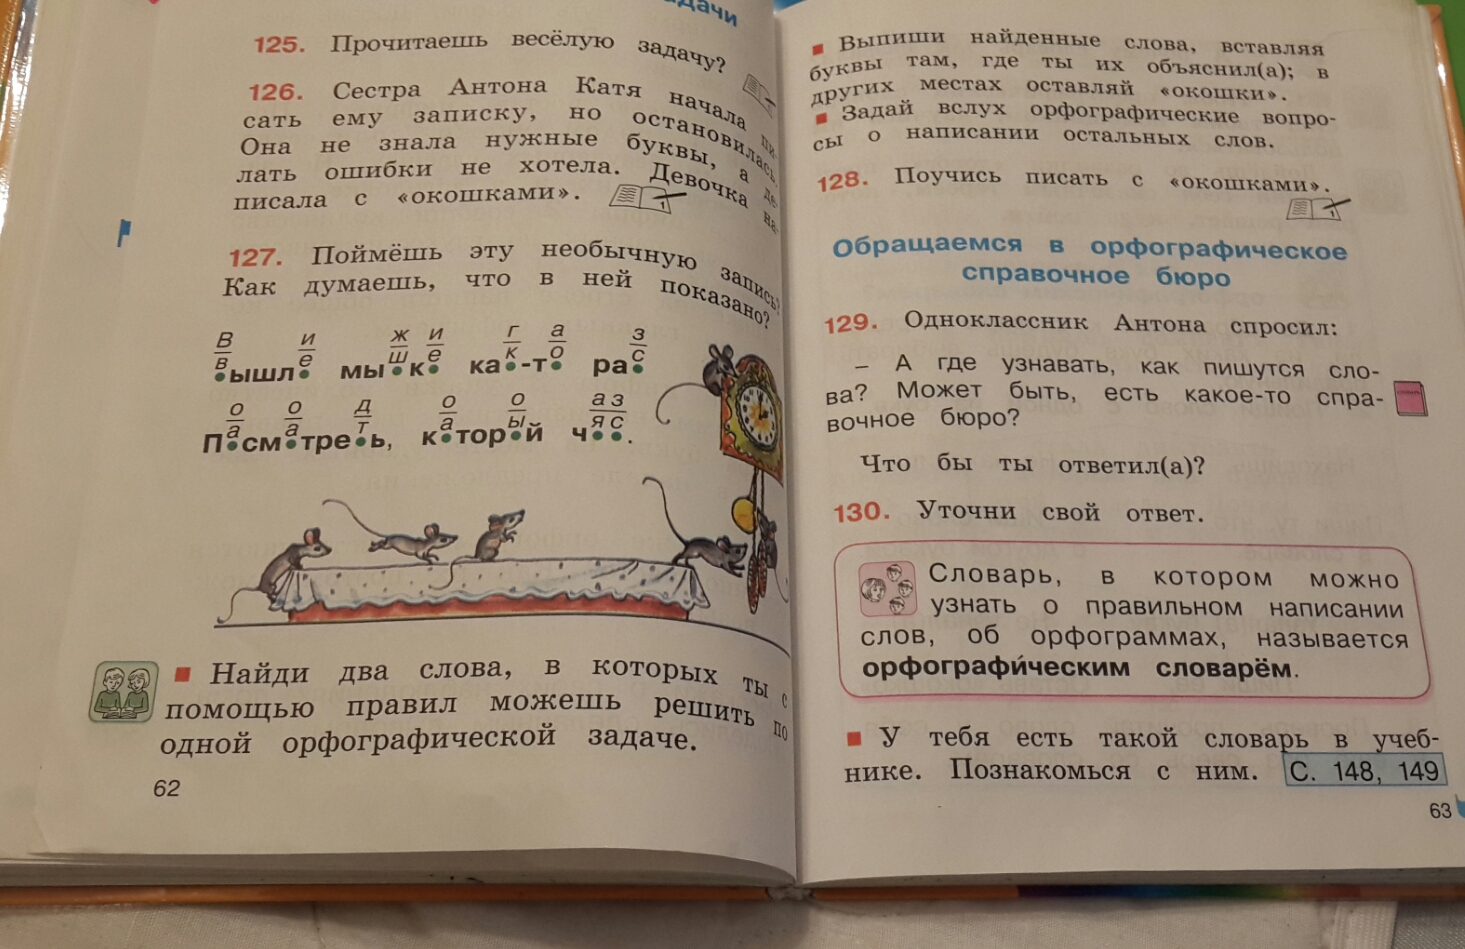 задачи
125. Прочитаешь весёлую задачу?
126. Сестра Антона Катя начала пи-
сать ему записку, но остановилась.
Она не знала нужные буквы, а де-
лать ошибки не хотела. Девочка на-
писала с «окошками».
127. Поймёшь эту необычную запись?
Как думаешь, что в ней показано?
В и ж и г а з
в е ш е к о с
•ышл• мы•к• ка•-т• ра•
о о д о о а з
а а т а ы я с
П•см•тре•ь, к•тор•й ч••.
Найди два слова, в которых ты с
помощью правил можешь решить по
одной орфографической задаче.
62
Выпиши найденные слова, вставляя
буквы там, где ты их объяснил(а); в
других местах оставляй «окошки».
Задай вслух орфографические вопро-
сы о написании остальных слов.
128. Поучись писать с «окошками».
Обращаемся в орфографическое
справочное бюро
129. Одноклассник Антона спросил:
– А где узнавать, как пишутся сло-
ва? Может быть, есть какое-то спра-
вочное бюро?
Что бы ты ответил(а)?
130. Уточни свой ответ.
Словарь, в котором можно
узнать о правильном написании
слов, об орфограммах, называется
орфографи́ческим словарём.
У тебя есть такой словарь в учеб-
нике. Познакомься с ним. С. 148, 149
63